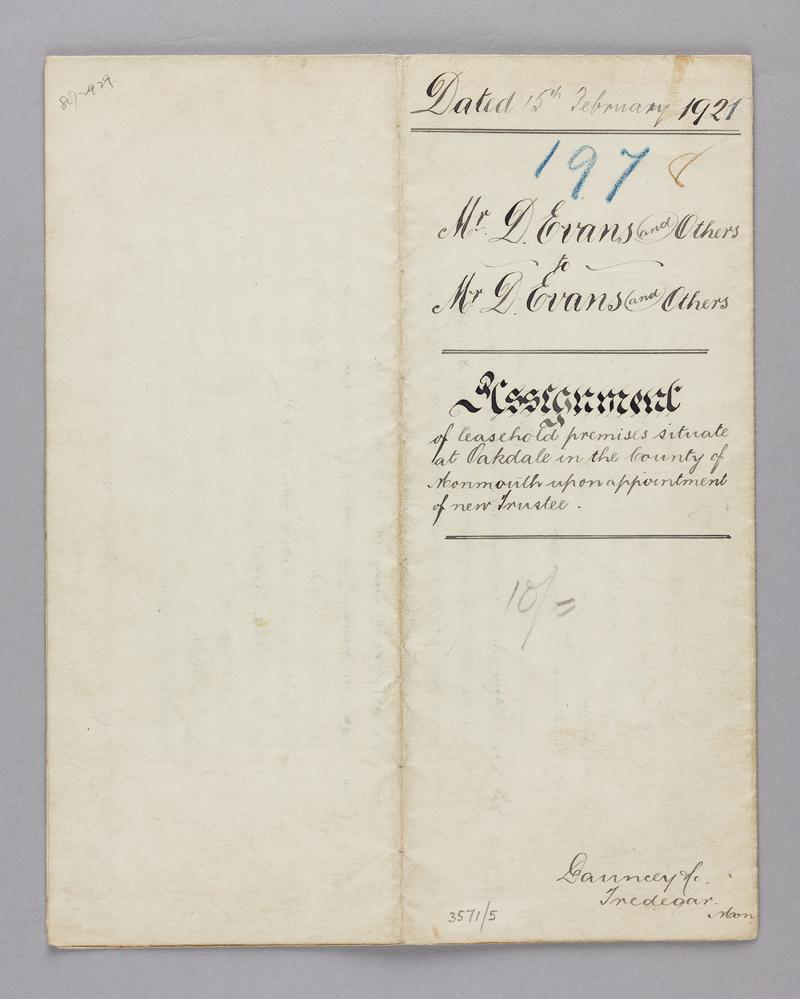 Dated 15th February 1921
197
Mr. D. Evans and Others
to
Mr D. Evans and Others
Assignment
of leasehold premises situate
at Oakdale in the County of
Monmouth upon appointment
of new Trustee.
10/=
Tredegar.
Mon
3571/5